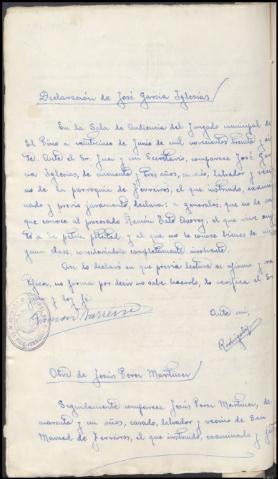 Declaración de José García Iglesias
En la Sala de Audiencia del Juzgado municipal de
El Pino a veinticinco de Junio de mil novecientos treinta y
te. Ante el Sr. Juez y mi Secretario, comparece José Gar
cía Iglesias, de cincuenta y tres años, casado, labrador y veci
no de la parroquia de Ferreiros, el que instruido, examinado
y previo juramento declara: a generales; que no le com
que conoce al procesado Ramón
es a de pobre
guna clase, considerándole completamente insolvente.
Así lo declaró en que previa lectura se afirma y ra
tifica, no firma por decir no saber hacerlo, lo verifica el Sr.
y doy fé.
Ramón Barreiro
Ante mí,
Rodríguez
Otra de Jesús Perez Martinez
Seguidamente comparece Jesús Perez Martinez, de
cuarenta y un años, casado, labrador y vecino de San
Mamed de Ferreiros, el que instruido, examinado y